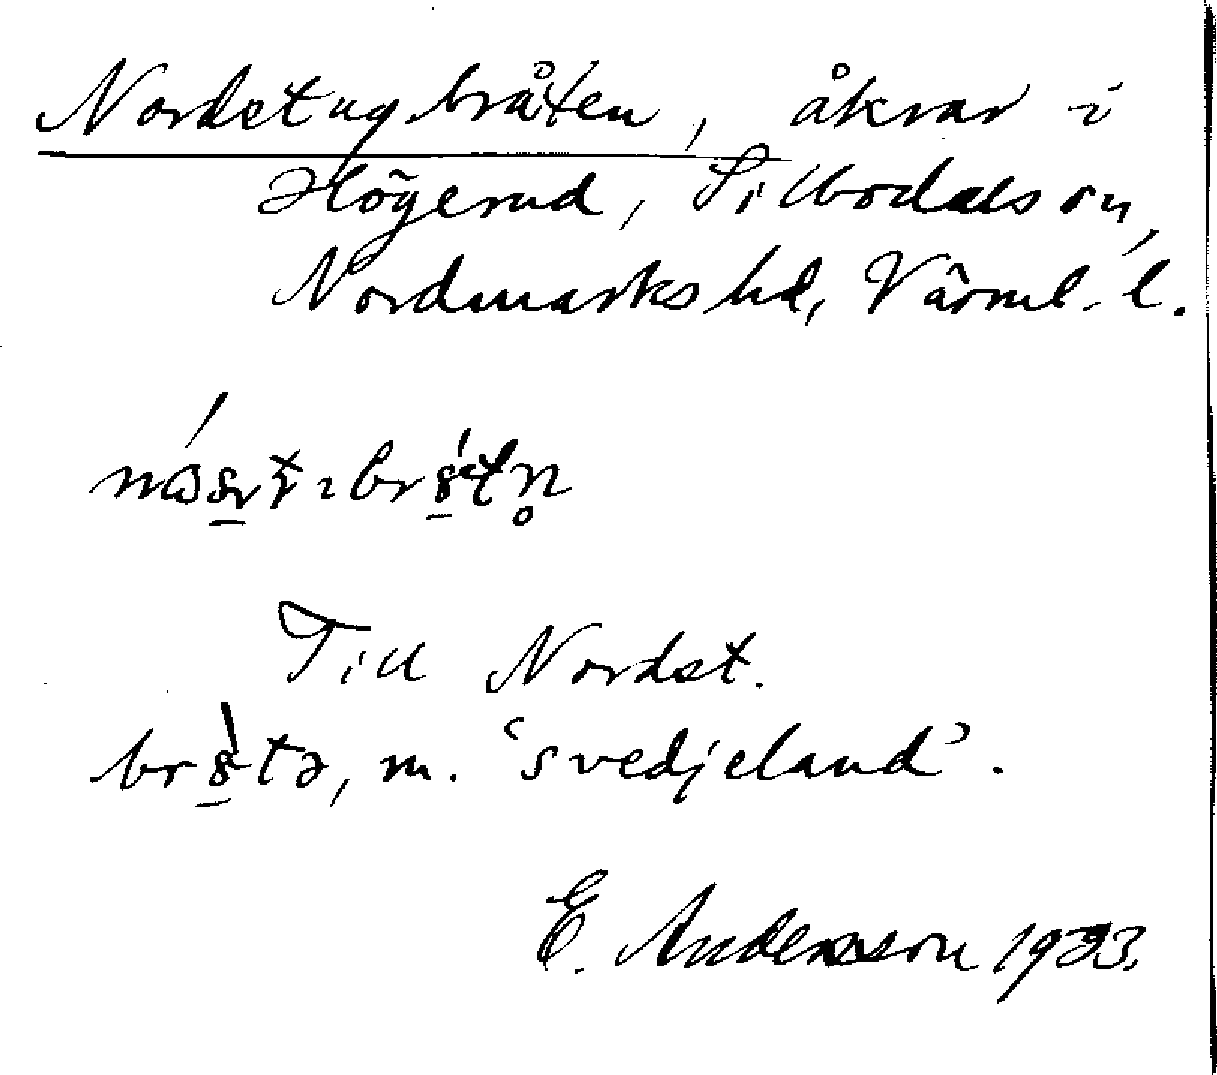 Nordstugbråten, åkrar i
Högerud, Silbodals sn,
Nordmarks hd, Värml. l.
Till Nordst.
m. 'svedjeland'.
E. Andersson 1933.